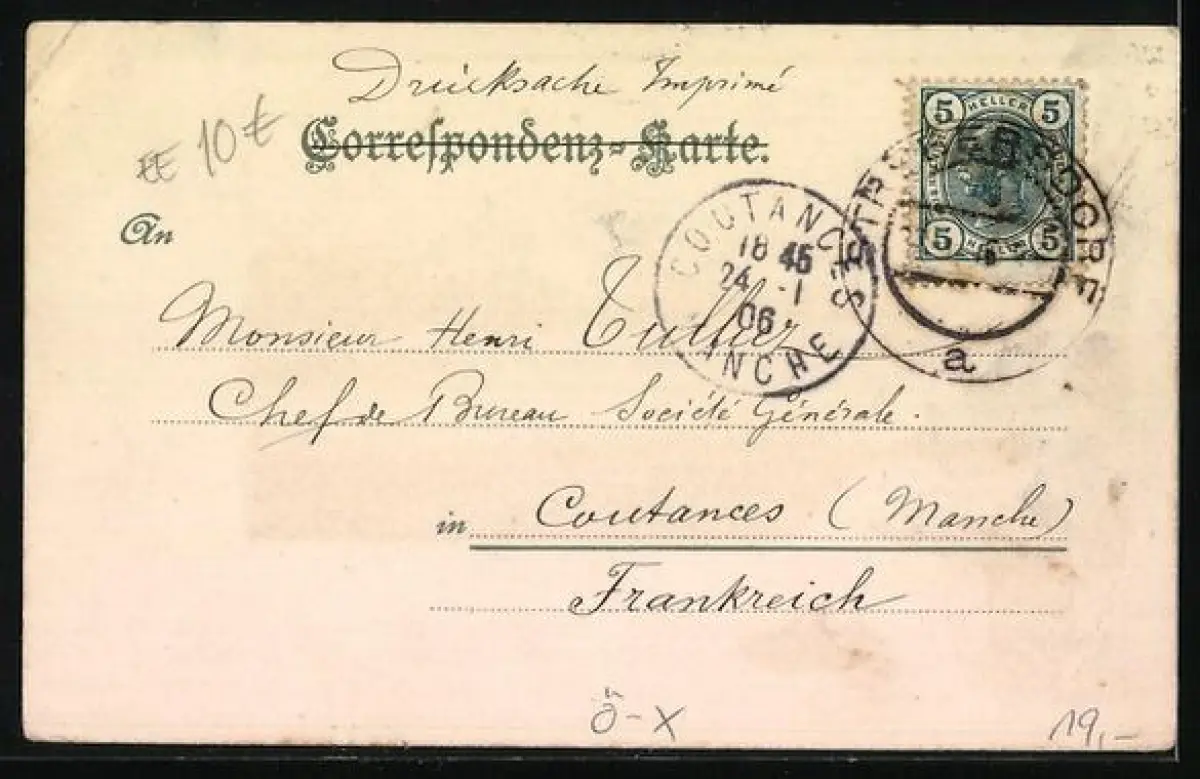 Drucksache Imprimé
Correspondenz-Karte.
10€
An
5 HELLER 5
5 HELLER 5
COUTANC
18 45
24 -1
06
NCHE
a
Monsieur Henri
Chef de Bureau Société Générale.
in Coutances (Manche)
Frankreich
Ö-X
19,-